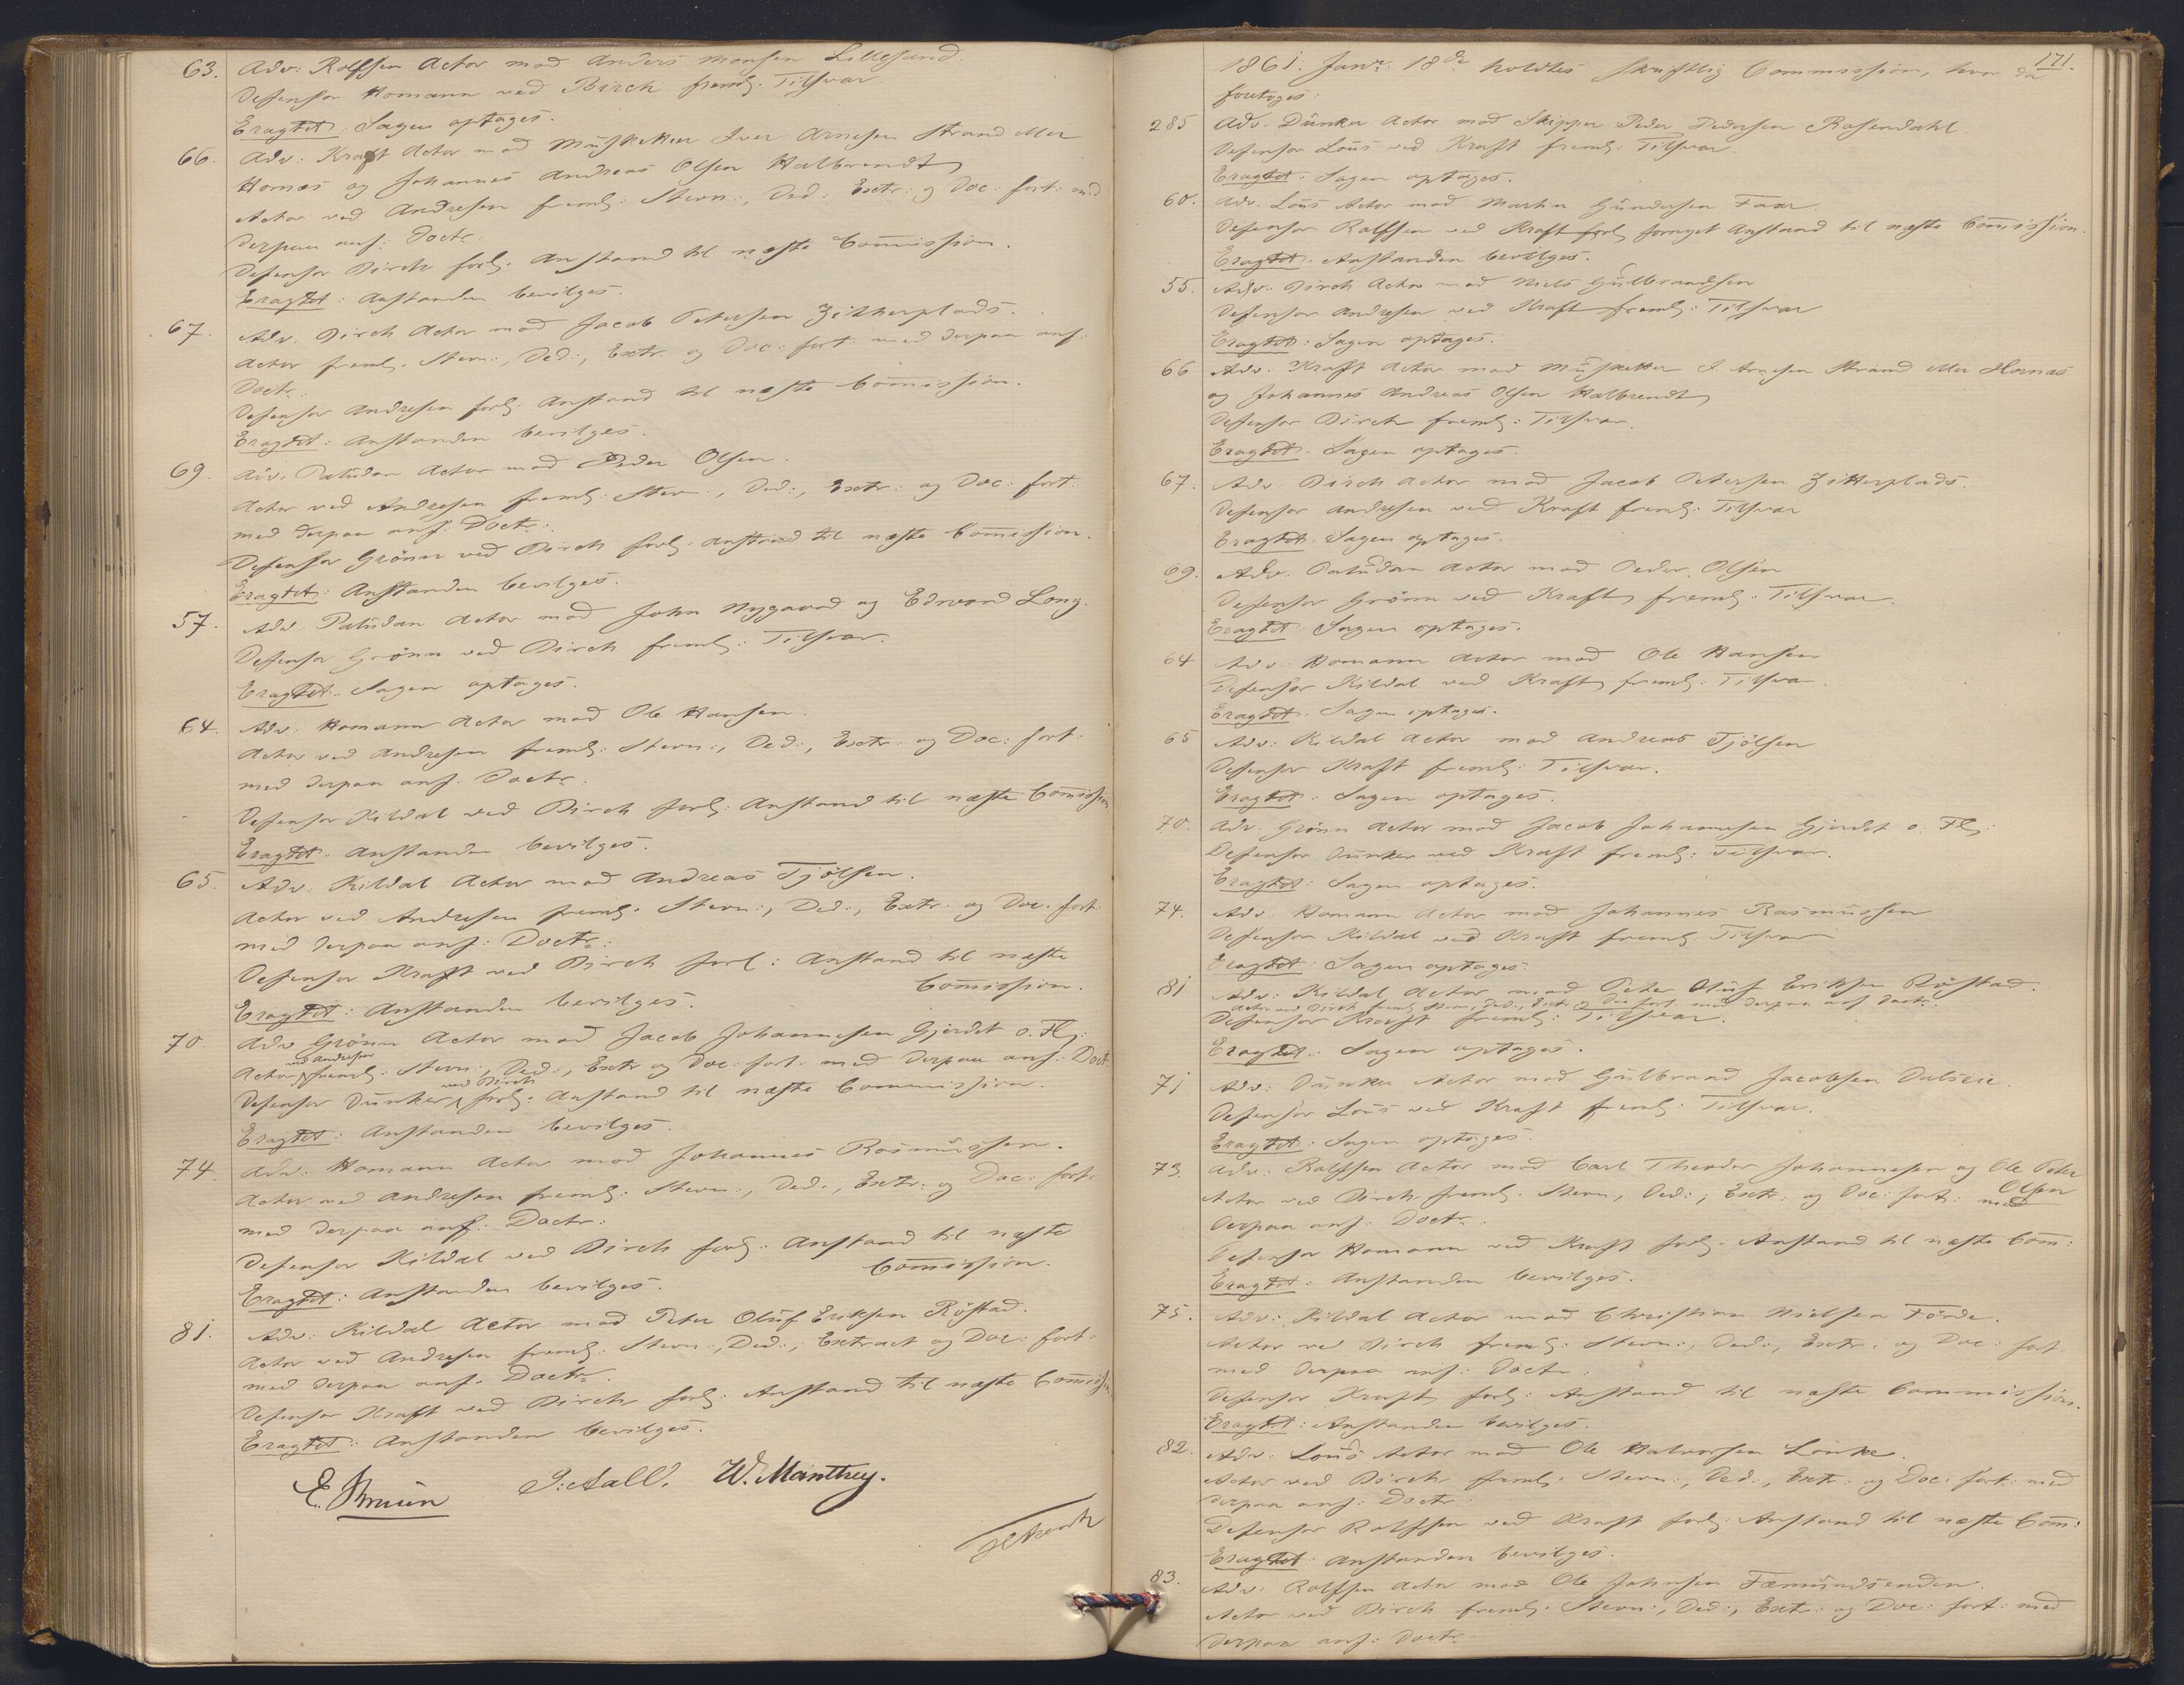 63. Adv: Rolfsen Actor mod Anders Monsen Lillesand.
Defensor Homann ved Birch freml: Tilsvar
Eragtet: Sagen optages.
66. Adv: Kraft Actor mod Musketteer Iver Arnesen Strand eller
Hornæs og Johannes Andreas Olsen Halbrendt
Actor ved Andresen freml: Stevn:, Ded:, Extr: og Doc: fort: med
derpaa anf: Doctr:
Defensor Birch forl: Anstand til næste Com̅ission.
Eragtet: Anstanden bevilges.
67. Adv. Birch Actor mod Jacob Petersen Zitherplads.
Actor freml. Stevn:, Ded:, Extr: og Doc: fort: med derpaa anf:
Doctr:
Defensor Andresen forl: Anstand til næste Com̅ission.
Eragtet: Anstanden bevilges.
69. Adv. Paludan Actor mod Peder Olsen.
Actor ved Andresen freml: Stevn:, Ded:, Extr: og Doc: fort:
med derpaa anf: Doctr:
Defensor Grönn ved Birch forl: Anstand til næste Com̅ission.
Eragtet: Anstanden bevilges.
57. Adv. Paludan Actor mod John Nygaard og Edward Long.
Defensor Grönn ved Birch freml: Tilsvar.
Eragtet: Sagen optages.
64. Adv. Homann Actor mod Ole Hansen.
Actor ved Andresen freml: Stevn:, Ded:, Extr: og Doc: fort:
med derpaa anf: Doctr.
Defensor Kildal ved Birch forl: Anstand til næste Com̅ission
Eragtet: Anstanden bevilges.
65. Adv. Kildal Actor mod Andreas Tjölsen.
Actor ved Andresen freml: Stevn:, Ded:, Extr: og Doc. fort:
med derpaa anf: Doctr:
Defensor Kraft ved Birch forl: Anstand til næste
Com̅ission.
Eragtet: Anstanden bevilges.
70. Adv Grönn Actor mod Jacob Johannesen Gjerdet o. Fl:
ved Andresen
Actor freml: Stevn:, Ded:, Extr og Doc: fort: med derpaa anf: Doctr:
ved Birch
Defensor Dunker forl: Anstand til næste Commission.
Eragtet: Anstanden bevilges.
74. Adv: Homann Actor mod Johannes Rasmussen.
Actor ved Andresen freml: Stevn:, Ded:, Extr: og Doc: fort:
med derpaa anf: Doctr:
Defensor Kildal ved Birch forl: Anstand til næste
Com̅ission.
Eragtet: Anstanden bevilges.
81. Adv: Kildal Actor mod Peter Oluf Eriksen Röstad.
Actor ved Andresen freml: Stevn:, Ded:, Extract og Doc: fort:
med derpaa anf. Doctr.
Defensor Kraft ved Birch forl: Anstand til næste Com̅ission
Eragtet: Anstanden bevilges.
E. Bruun P. Aall. W. Manthey.
171.
1861. Janr: 18de holdtes skriftlig Commission, hvor da
foretoges:
285 Adv. Dunker Actor mod Skipper Peder Pedersen Rosendahl.
Defensor Lous ved Kraft freml: Tilsvar.
Eragtet: Sagen optages.
60. Adv. Lous Actor mod Martin Gundersen Faar.
Defensor Rolfsen ved Kraft forl fornyet Anstand til næste Com̅ission.
Eragtet: Anstanden bevilges.
55. Adv: Birch Actor mod Niels Gulbrandsen
Defensor Andresen ved Kraft freml: Tilsvar
Eragtet: Sagen optages.
66 Adv. Kraft Actor mod Musketteer I. Arnesen Strand eller Hornæs
og Johannes Andreas Olsen Halbrendt
Defensor Birch freml: Tilsvar.
Eragtet: Sagen optages.
67. Adv: Birch Actor mod Jacob Petersen Zitterplads.
Defensor Andresen ved Kraft freml: Tilsvar
Eragtet: Sagen optages.
69. Adv. Paludan Actor mod Peder Olsen
Defensor Grönn ved Kraft freml: Tilsvar.
Eragtet: Sagen optages.
64 Adv. Homann Actor mod Ole Hansen
Defensor Kildal ved Kraft freml: Tilsvar.
Eragtet: Sagen optages.
65 Adv: Kildal Actor mod Andreas Tjölsen
Defensor Kraft freml: Tilsvar.
Eragtet: Sagen optages.
70. Adv. Grönn Actor mod Jacob Johannesen Gjerdet o. Fl:
Defensor Dunker ved Kraft freml: Tilsvar.
Eragtet: Sagen optages.
74. Adv. Homann Actor mod Johannes Rasmussen
Defensor Kildal ved Kraft freml: Tilsvar
Eragtet: Sagen optages.
81 Adv: Kildal Actor mod Peter Oluf Eriksen Röstad.
Actor ved Birch freml Stevn, Ded:, Extr: og Doc fort: med derpaa anf Doctr:
Defensor Kraft freml: Tilsvar.
Eragtet: Sagen optages.
71 Adv: Dunker Actor mod Gulbrand Jacobsen Dalseie.
Defensor Lous ved Kraft freml: Tilsvar.
Eragtet: Sagen optages.
73. Adv: Rolfsen Actor mod Carl Theodor Johannesen og Ole Peter
Olsen
Actor ved Birch freml: Stevn, Ded:, Extr: og Doc: fort: med
derpaa anf: Doctr:
Defensor Homann ved Kraft forl: Anstand til næste Com̅:
Eragtet: Anstanden bevilges.
75. Adv: Kildal Actor mod Christian Nielsen Förde.
Actor ved Birch freml: Stevn:, Ded:, Extr: og Doc: fort
med derpaa anf: Doctr:
Defensor Kraft forl: Anstand til næste Commission.
Eragtet: Anstanden bevilges.
82. Adv: Lous Actor mod Ole Halvorsen Lönke.
Actor ved Birch freml: Stevn:, Ded:, Extr: og Doc: fort: med
derpaa anf: Doctr:
Defensor Rolfsen ved Kraft forl: Anstand til næste Com̅:
Eragtet Anstanden bevilges.
83. Adv: Rolfsen Actor mod Ole Johnsen Fæmundsenden.
Actor ved Birch freml: Stevn:, Ded:, Extr: og Doc: fort: med
derpaa anf: Doctr: